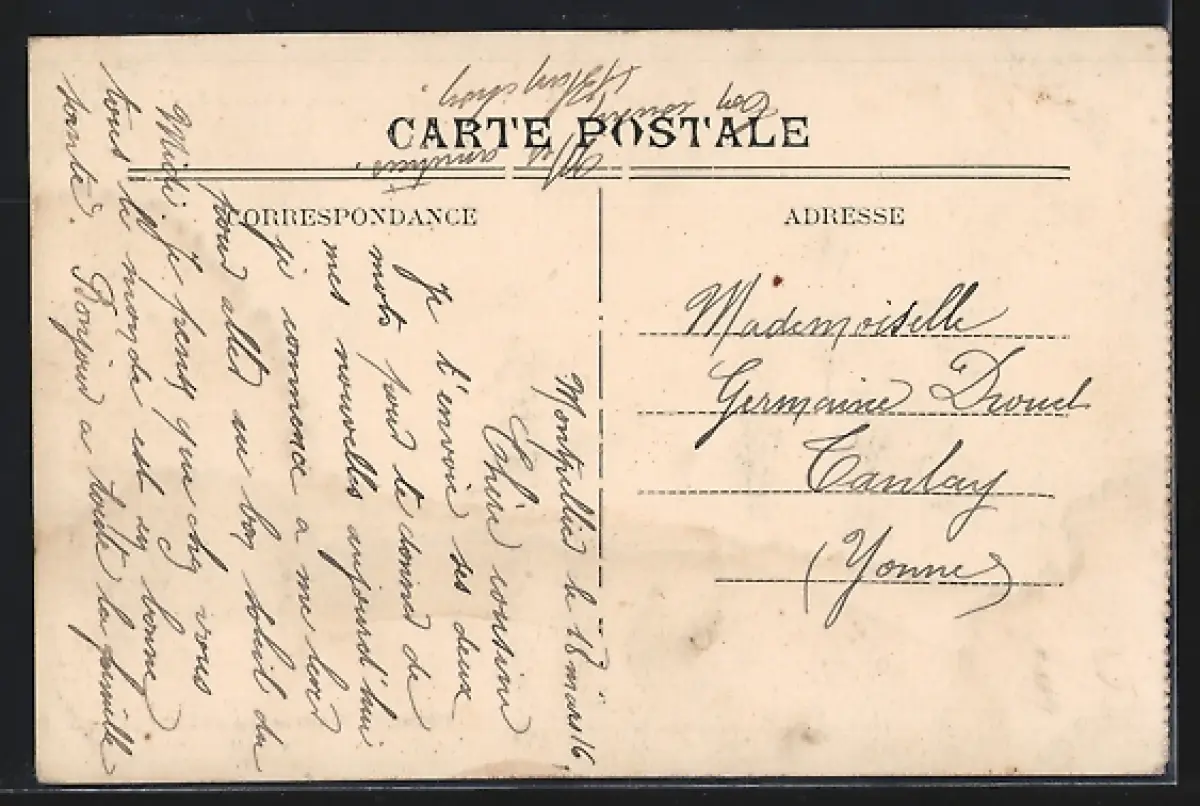 CARTE POSTALE
CORRESPONDANCE
ADRESSE
Mademoiselle
Germaine Drouel
Tanlay
(Yonne)
Montpellier le 18 mars 16,
Chère cousine
Je t'envoie ses deux
mots pour te donner de
mes nouvelles aujourd'hui
je commence a me lever
pour aller au bon soleil du
Midi. Je pense que chez vous
tous le monde est en bonne
santé. Bonjour a toute la famille
Mes amitiés.
Ton cousin